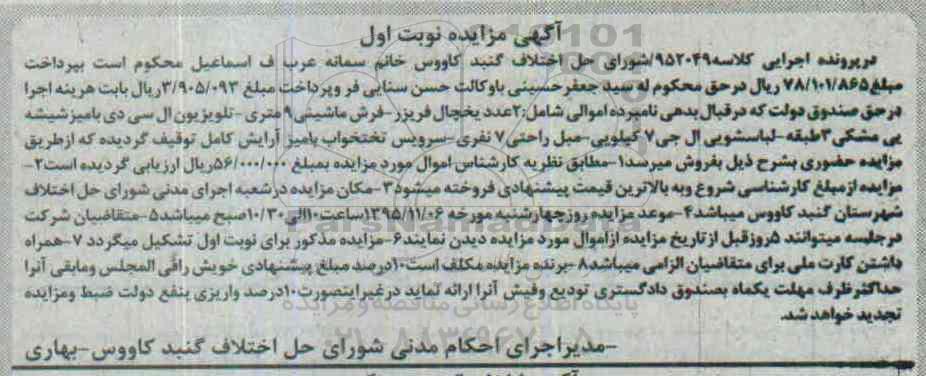 آگهی مزایده نوبت اول
درپرونده اجرایی کلاسه۹۵۲۰۴۹/شورای حل اختلاف گنبد کاووس خانم سمانه عرب ف اسماعیل محکوم است بپرداخت
مبلغ۷۸/۱۰۱/۸۶۵ ریال درحق محکوم له سید جعفرحسینی باوکالت حسن سنایی فر وپرداخت مبلغ ۳/۹۰۵/۰۹۳ریال بابت هزینه اجرا
درحق صندوق دولت که درقبال بدهی نامبرده اموالی شامل:۲عدد یخچال فریزر-فرش ماشینی۹ متری-تلویزیون ال سی دی بامیزشیشه
یی مشکی۳طبقه-لباسشویی ال جی۷ کیلویی-مبل راحتی۷ نفری-سرویس تختخواب بامیز آرایش کامل توقیف گردیده که ازطریق
مزایده حضوری بشرح ذیل بفروش میرسد۱-مطابق نظریه کارشناس اموال مورد مزایده بمبلغ ۵۶/۰۰۰/۰۰۰ریال ارزیابی گردیده است۲-
مزایده ازمبلغ کارشناسی شروع وبه بالاترین قیمت پیشنهادی فروخته میشود۳-مکان مزایده درشعبه اجرای مدنی شورای حل اختلاف
شهرستان گنبد کاووس میباشد۴-موعد مزایده روزچهارشنبه مورخه ۱۳۹۵/۱۱/۰۶ساعت۱۰الی۱۰/۳۰صبح میباشد۵-متقاضیان شرکت
درجلسه میتوانند ۵روزقبل ازتاریخ مزایده ازاموال مورد مزایده دیدن نمایند۶-مزایده مذکور برای نوبت اول تشکیل میگردد ۷-همراه
داشتن کارت ملی برای متقاضیان الزامی میباشد۸-برنده مزایده مکلف است۱۰درصد مبلغ پیشنهادی خویش رافی المجلس ومابقی آنرا
حداکثرظرف مهلت یکماه بصندوق دادگستری تودیع وفیش آنرا ارائه نماید درغیراینصورت۱۰درصد واریزی بنفع دولت ضبط ومزایده
تجدید خواهد شد.
-مدیراجرای احکام مدنی شورای حل اختلاف گنبد کاووس-بهاری
ParsNamadData
پایگاه اطلاع رسانی مناقصه و مزایده